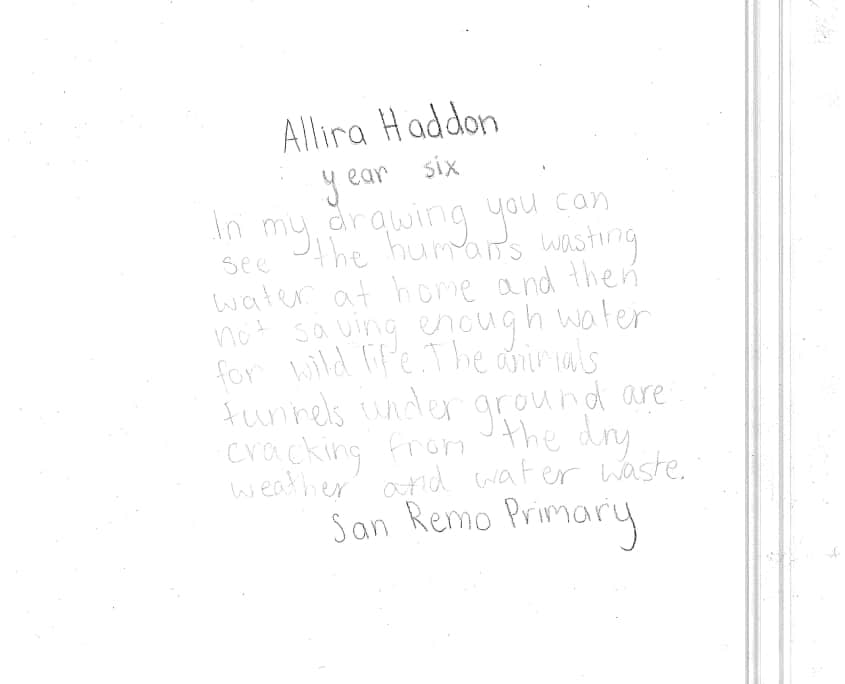 Allira Haddon
year six
In my drawing you can
see the humans wasting
water at home and then
not saving enough water
for wild life. The animals
tunnels under ground are
cracking from the dry
weather and water waste.
San Remo Primary